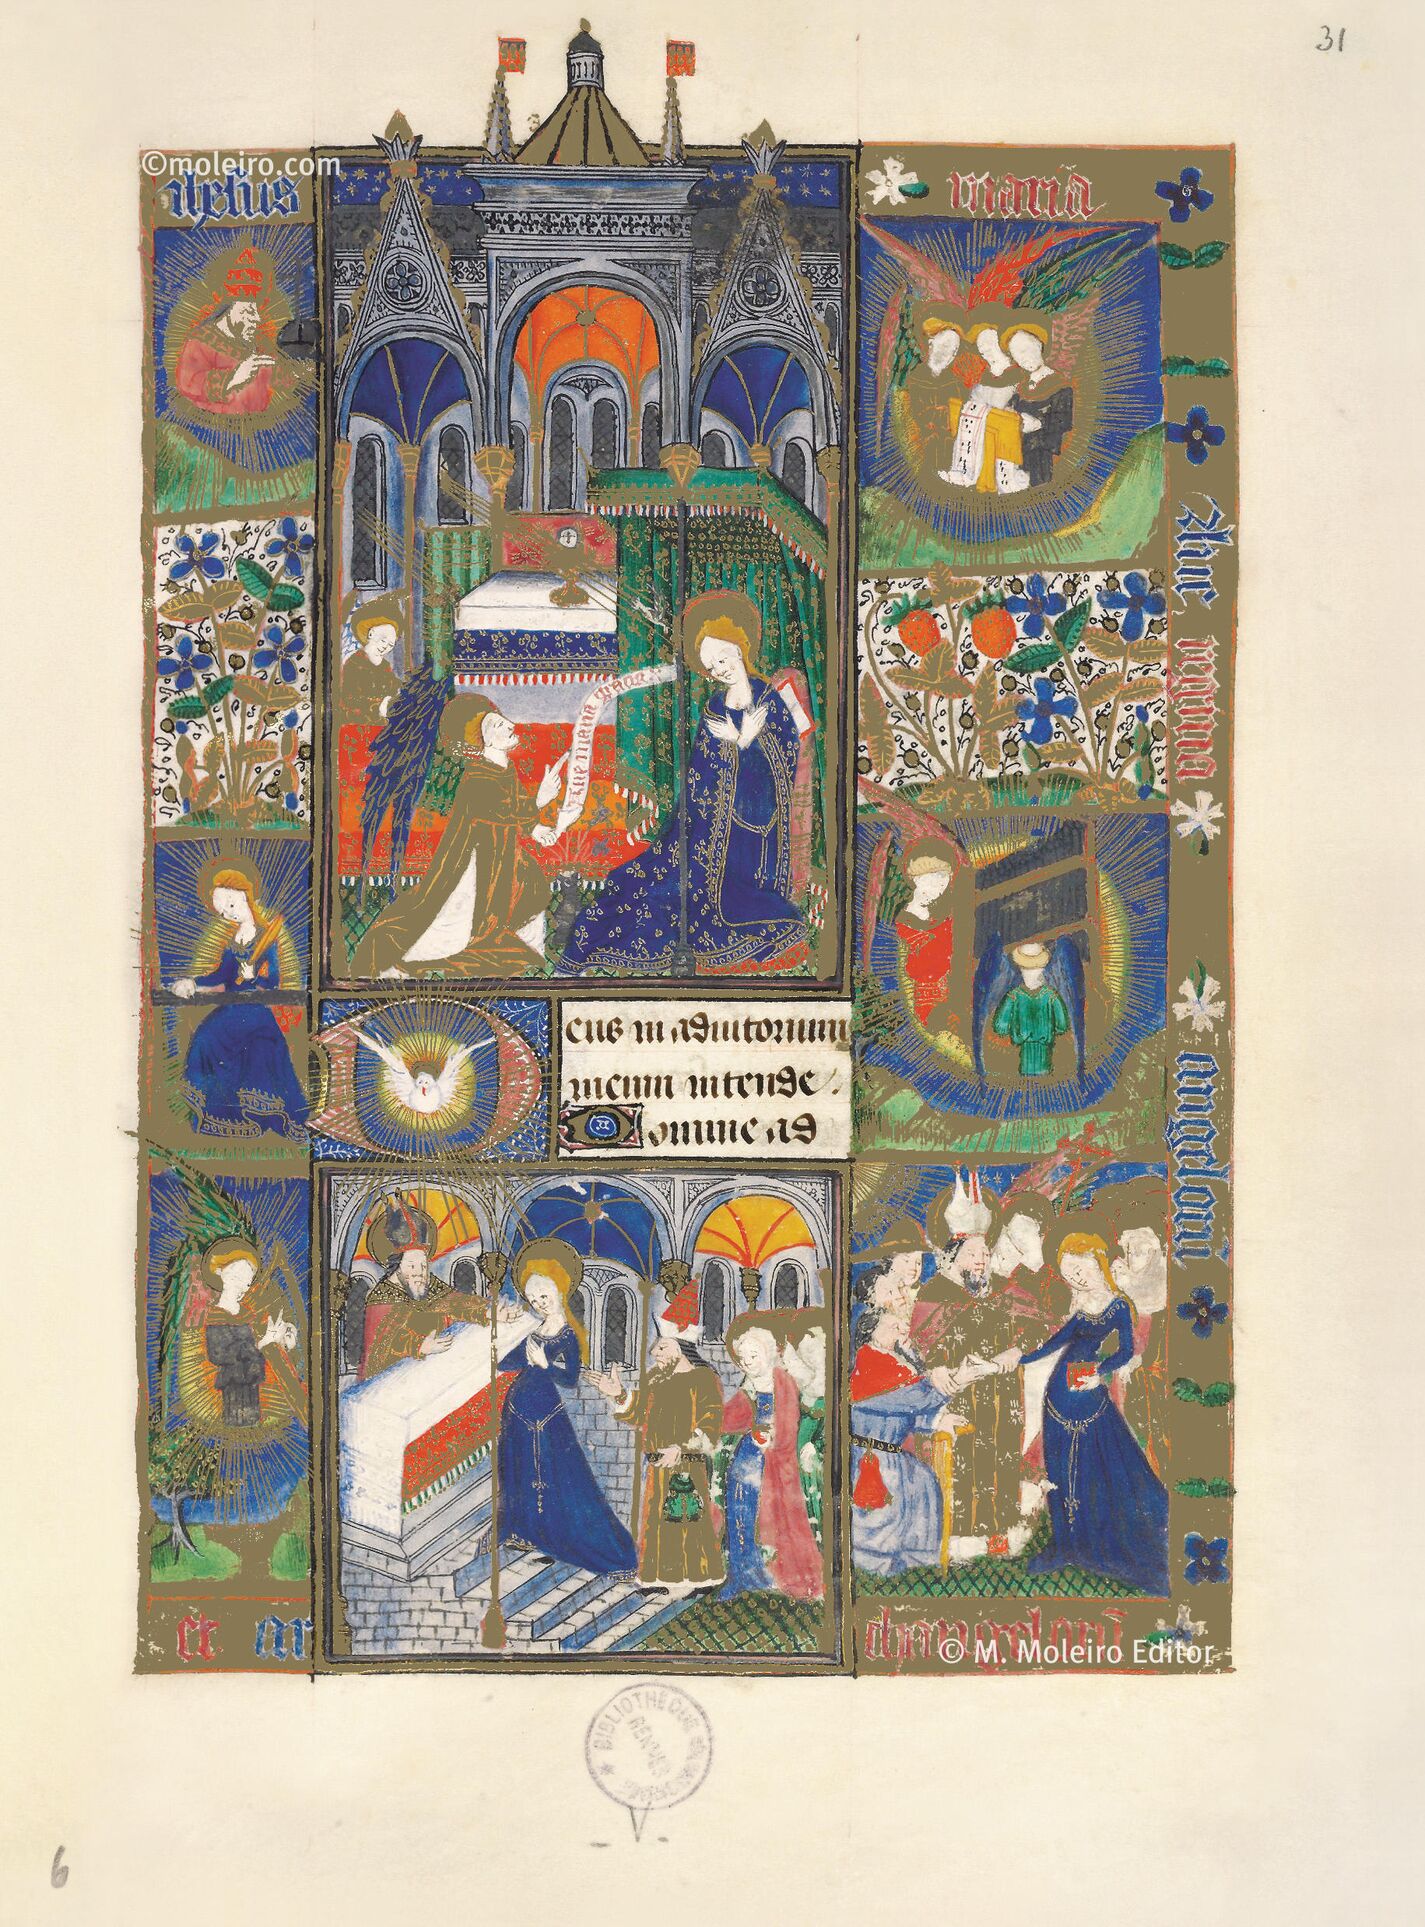 31
©moleiro.com
maria
Ave maria gracia
Ave regina angeloru
eus in adiutorium
meum intende.
Domine ad
et ar
changeloru
© M. Moleiro Editor
BIBLIOTHEQUE
RENNES
6